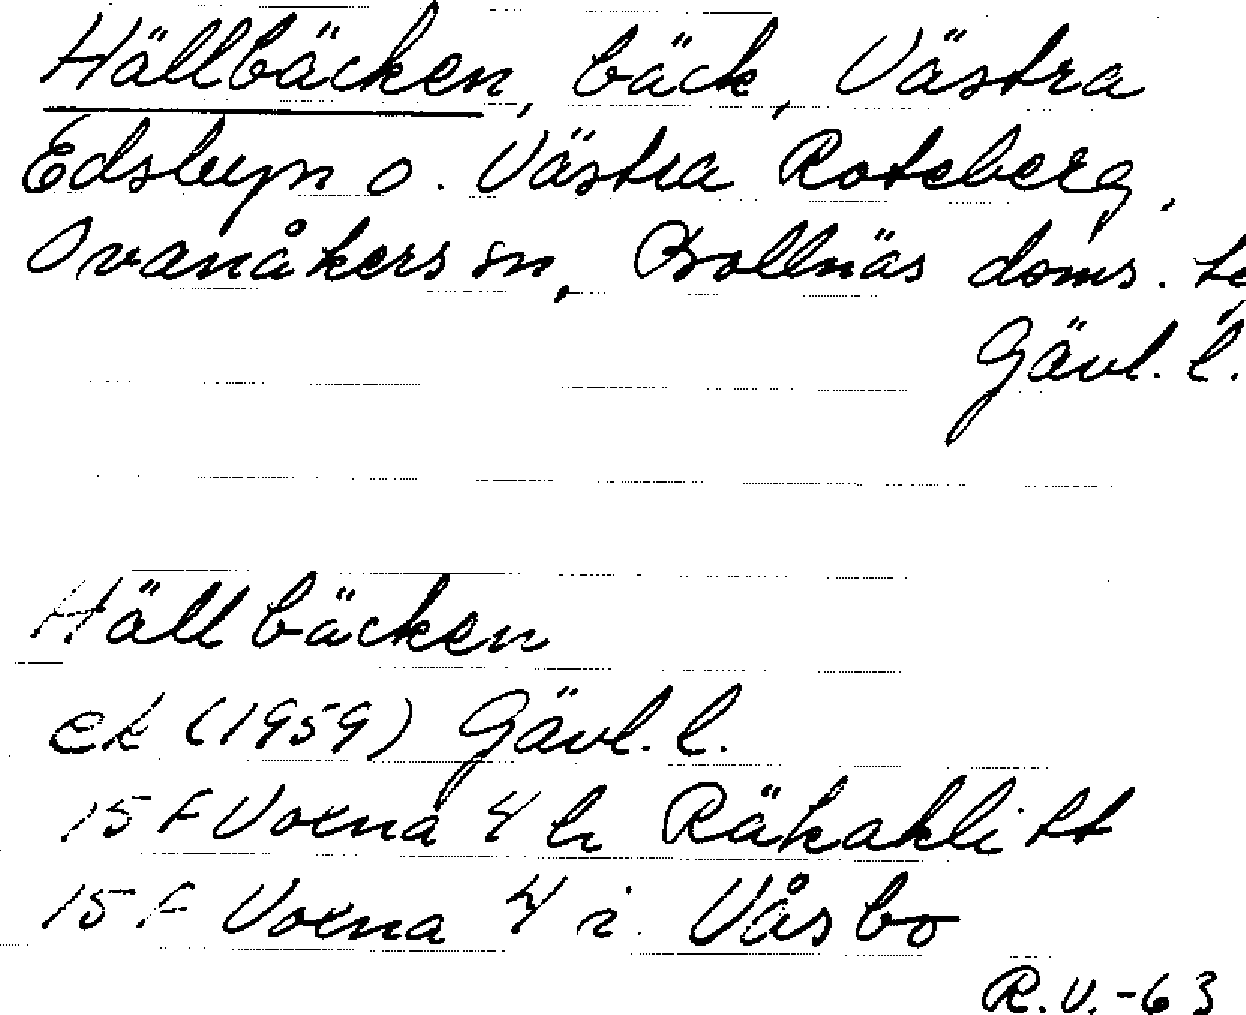 Hällbäcken, bäck, Västra
Edsbyn o. Västra Roteberg,
Ovanåkers sn, Bollnäs doms. 
Gävl. l.
Hällbäcken
ek (1959) Gävl. l.
15 F Voxna 4 h Räkaklitt
15 F Voxna 4 i Våsbo
R.V.-63